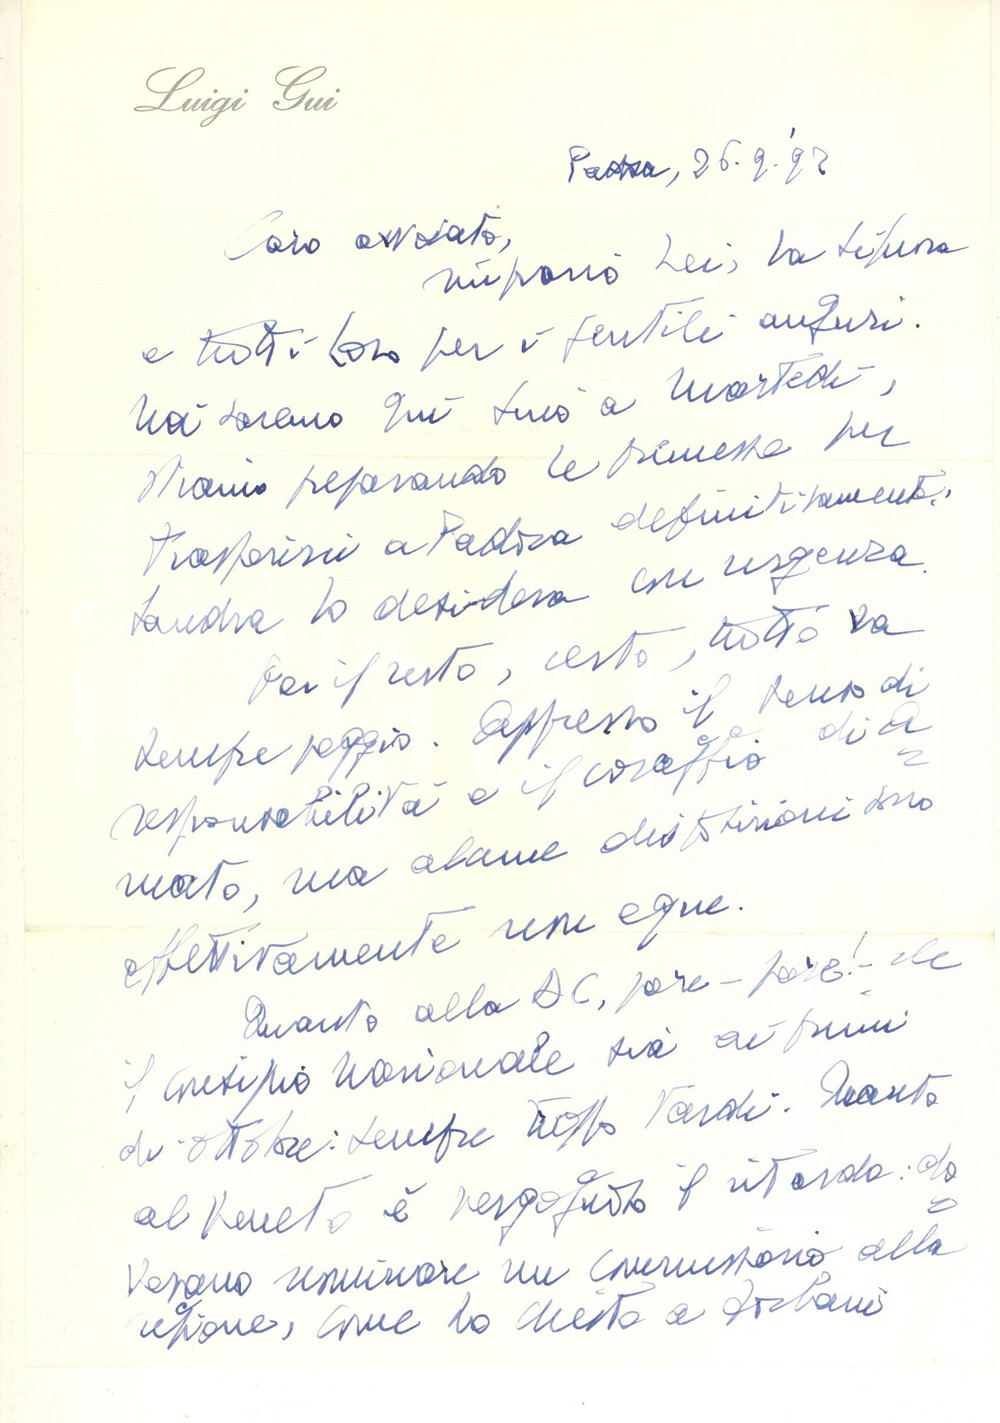 Luigi Gui
Padova, 26.9.'92
Caro avvocato,
ringrazio Lei, la Signora
e tutti Loro per i gentili auguri.
Noi saremo qui sino a martedì,
stiamo preparando le premesse per
trasferirsi a Padova definitivamente.
Sandra lo desidera con urgenza.
Per il resto, certo, tutto va
sempre peggio. Apprezzo il senso di
responsabilità e il coraggio di A
mato, ma alcune disposizioni sono
effettivamente non eque.
Quanto alla DC, pare - pare! - che
il Consiglio Nazionale sia ai primi
di ottobre: sempre troppo tardi. Quanto
al Veneto è vergognoso il ritardo: do
vevano nominare un Commissario alla
regione, come ho chiesto a Forlani